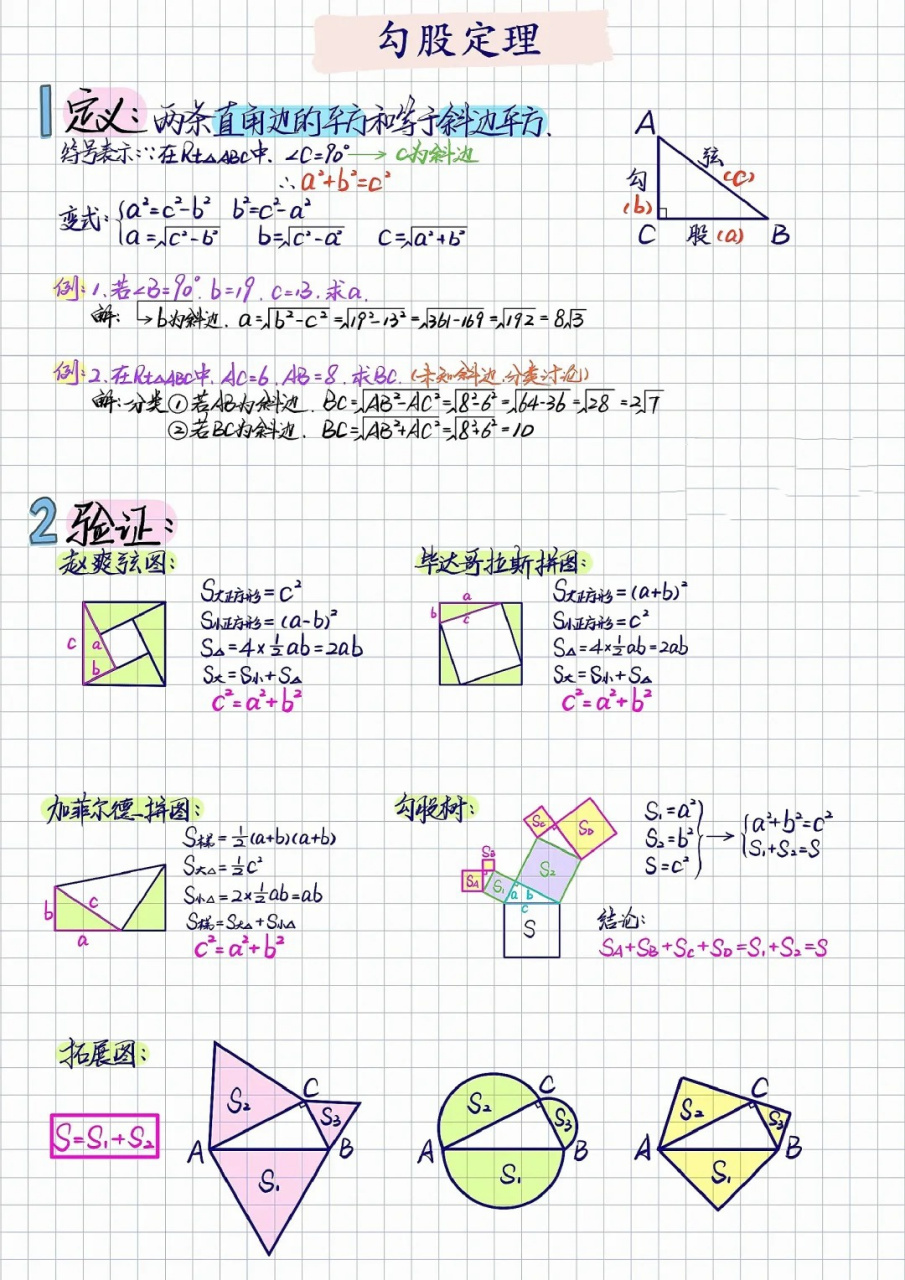 勾股定理
1 定义：两条直角边的平方和等于斜边平方.
符号表示：∵在Rt△ABC中，∠C=90° → c为斜边
∴a²+b²=c²
变式：{a²=c²-b² b²=c²-a²
a=√c²-b² b=√c²-a² C=√a²+b²
A
勾
(b)
弦
(c)
C 股(a) B
例：1.若∠B=90°, b=19, c=13, 求a.
解： ↳b为斜边. a=√b²-c²=√19²-13²=√361-169=√192=8√3
例：2.在Rt△ABC中, AC=6, AB=8, 求BC. (未知斜边,分类讨论)
解：分类①若AB为斜边. BC=√AB²-AC²=√8²-6²=√64-36=√28=2√7
②若BC为斜边. BC=√AB²+AC²=√8²+6²=10
2 验证：
赵爽弦图：
c
a
b
S大正方形=c²
S小正方形=(a-b)²
S△=4×½ab=2ab
S大=S小+S△
c²=a²+b²
毕达哥拉斯拼图：
a
b
c
S大正方形=(a+b)²
S小正方形=c²
S△=4×½ab=2ab
S大=S小+S△
c²=a²+b²
加菲尔德拼图：
b
c
a
S梯=½(a+b)(a+b)
S大△=½c²
S小△=2×½ab=ab
S梯=S大△+S小△
c²=a²+b²
勾股树：
SC
SD
SB
SA
S1
S2
a b
c
S
S1=a²
S2=b²
S=c²
} → {a²+b²=c²
S1+S2=S
结论：
SA+SB+SC+SD=S1+S2=S
拓展图：
S=S1+S2
S2
C
S3
A
B
S1
S2
C
S3
A
B
S1
S2
C
S3
A
B
S1